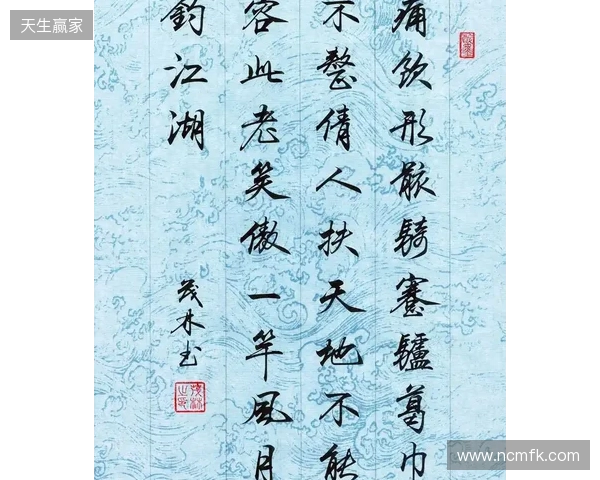 天生赢家
痛飲形骸騎蹇驢葛巾
不整倩人扶天地不能
容此老笑傲一竿風月
釣江湖
茂林书
https://www.ncmfk.com